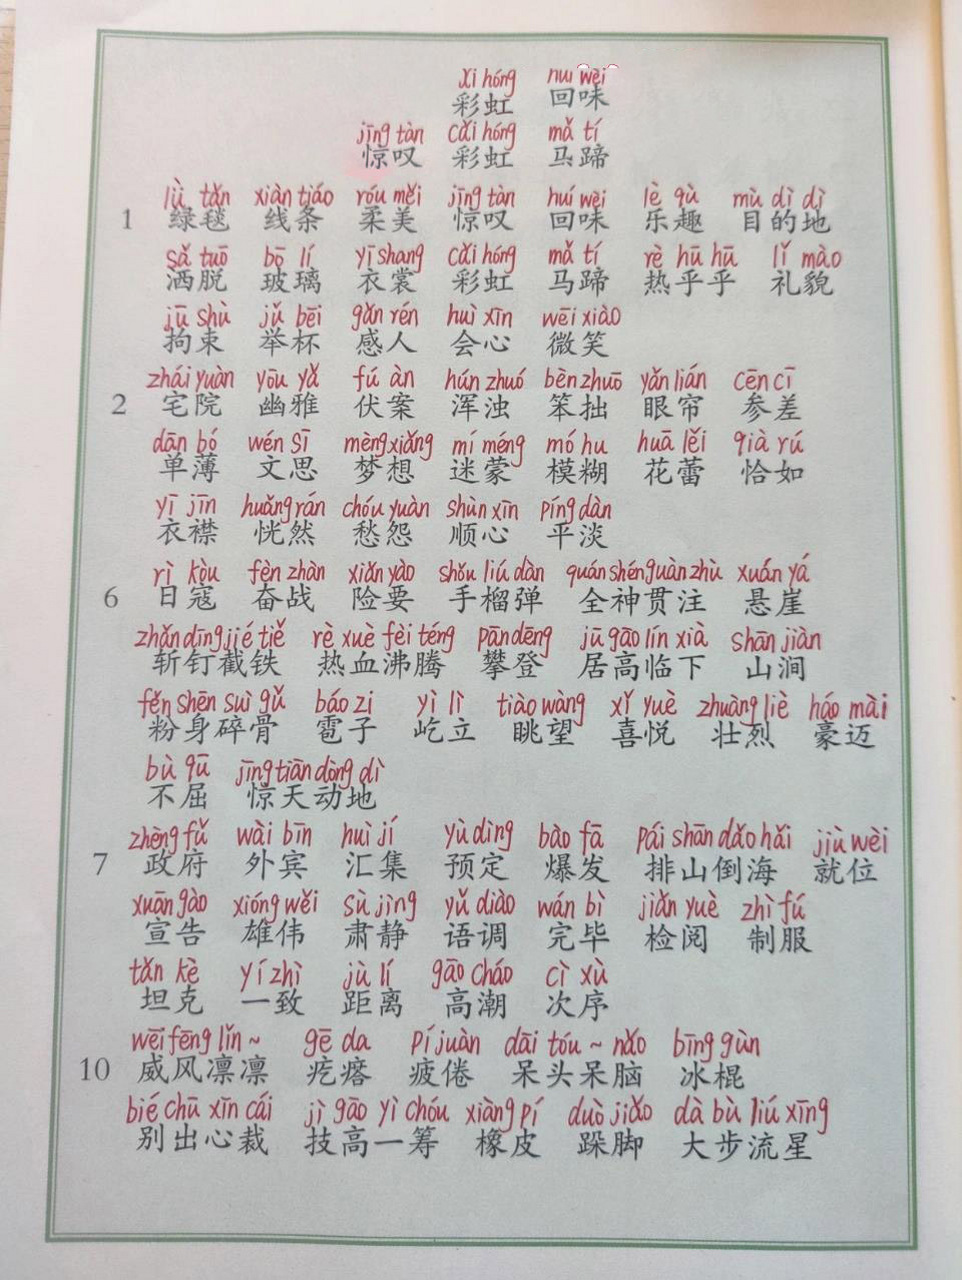 xi hóng huí wèi
彩虹 回味
jīng tàn cǎi hóng mǎ tí
惊叹 彩虹 马蹄
lǜ tǎn xiàn tiáo róu měi jīng tàn huí wèi lè qù mù dì dì
1 绿毯 线条 柔美 惊叹 回味 乐趣 目的地
sǎ tuō bō lí yī shang cǎi hóng mǎ tí rè hū hū lǐ mào
洒脱 玻璃 衣裳 彩虹 马蹄 热乎乎 礼貌
jū shù jǔ bēi gǎn rén huì xīn wēi xiào
拘束 举杯 感人 会心 微笑
zhái yuàn yōu yǎ fú àn hún zhuó bèn zhuō yǎn lián cēn cī
2 宅院 幽雅 伏案 浑浊 笨拙 眼帘 参差
dān bó wén sī mèng xiǎng mí méng mó hu huā lěi qià rú
单薄 文思 梦想 迷蒙 模糊 花蕾 恰如
yī jīn huǎng rán chóu yuàn shùn xīn píng dàn
衣襟 恍然 愁怨 顺心 平淡
rì kòu fèn zhàn xiǎn yào shǒu liú dàn quán shén guàn zhù xuán yá
6 日寇 奋战 险要 手榴弹 全神贯注 悬崖
zhǎn dīng jié tiě rè xuè fèi téng pān dēng jū gāo lín xià shān jiàn
斩钉截铁 热血沸腾 攀登 居高临下 山涧
fěn shēn suì gǔ báo zi yì lì tiào wàng xǐ yuè zhuàng liè háo mài
粉身碎骨 雹子 屹立 眺望 喜悦 壮烈 豪迈
bù qū jīng tiān dòng dì
不屈 惊天动地
zhèng fǔ wài bīn huì jí yù dìng bào fā pái shān dǎo hǎi jiù wèi
7 政府 外宾 汇集 预定 爆发 排山倒海 就位
xuān gào xióng wěi sù jìng yǔ diào wán bì jiǎn yuè zhì fú
宣告 雄伟 肃静 语调 完毕 检阅 制服
tǎn kè yí zhì jù lí gāo cháo cì xù
坦克 一致 距离 高潮 次序
wēi fēng lǐn ~ gē da pí juàn dāi tóu ~ nǎo bīng gùn
10 威风凛凛 疙瘩 疲倦 呆头呆脑 冰棍
bié chū xīn cái jì gāo yì chóu xiàng pí duò jiǎo dà bù liú xīng
别出心裁 技高一筹 橡皮 跺脚 大步流星